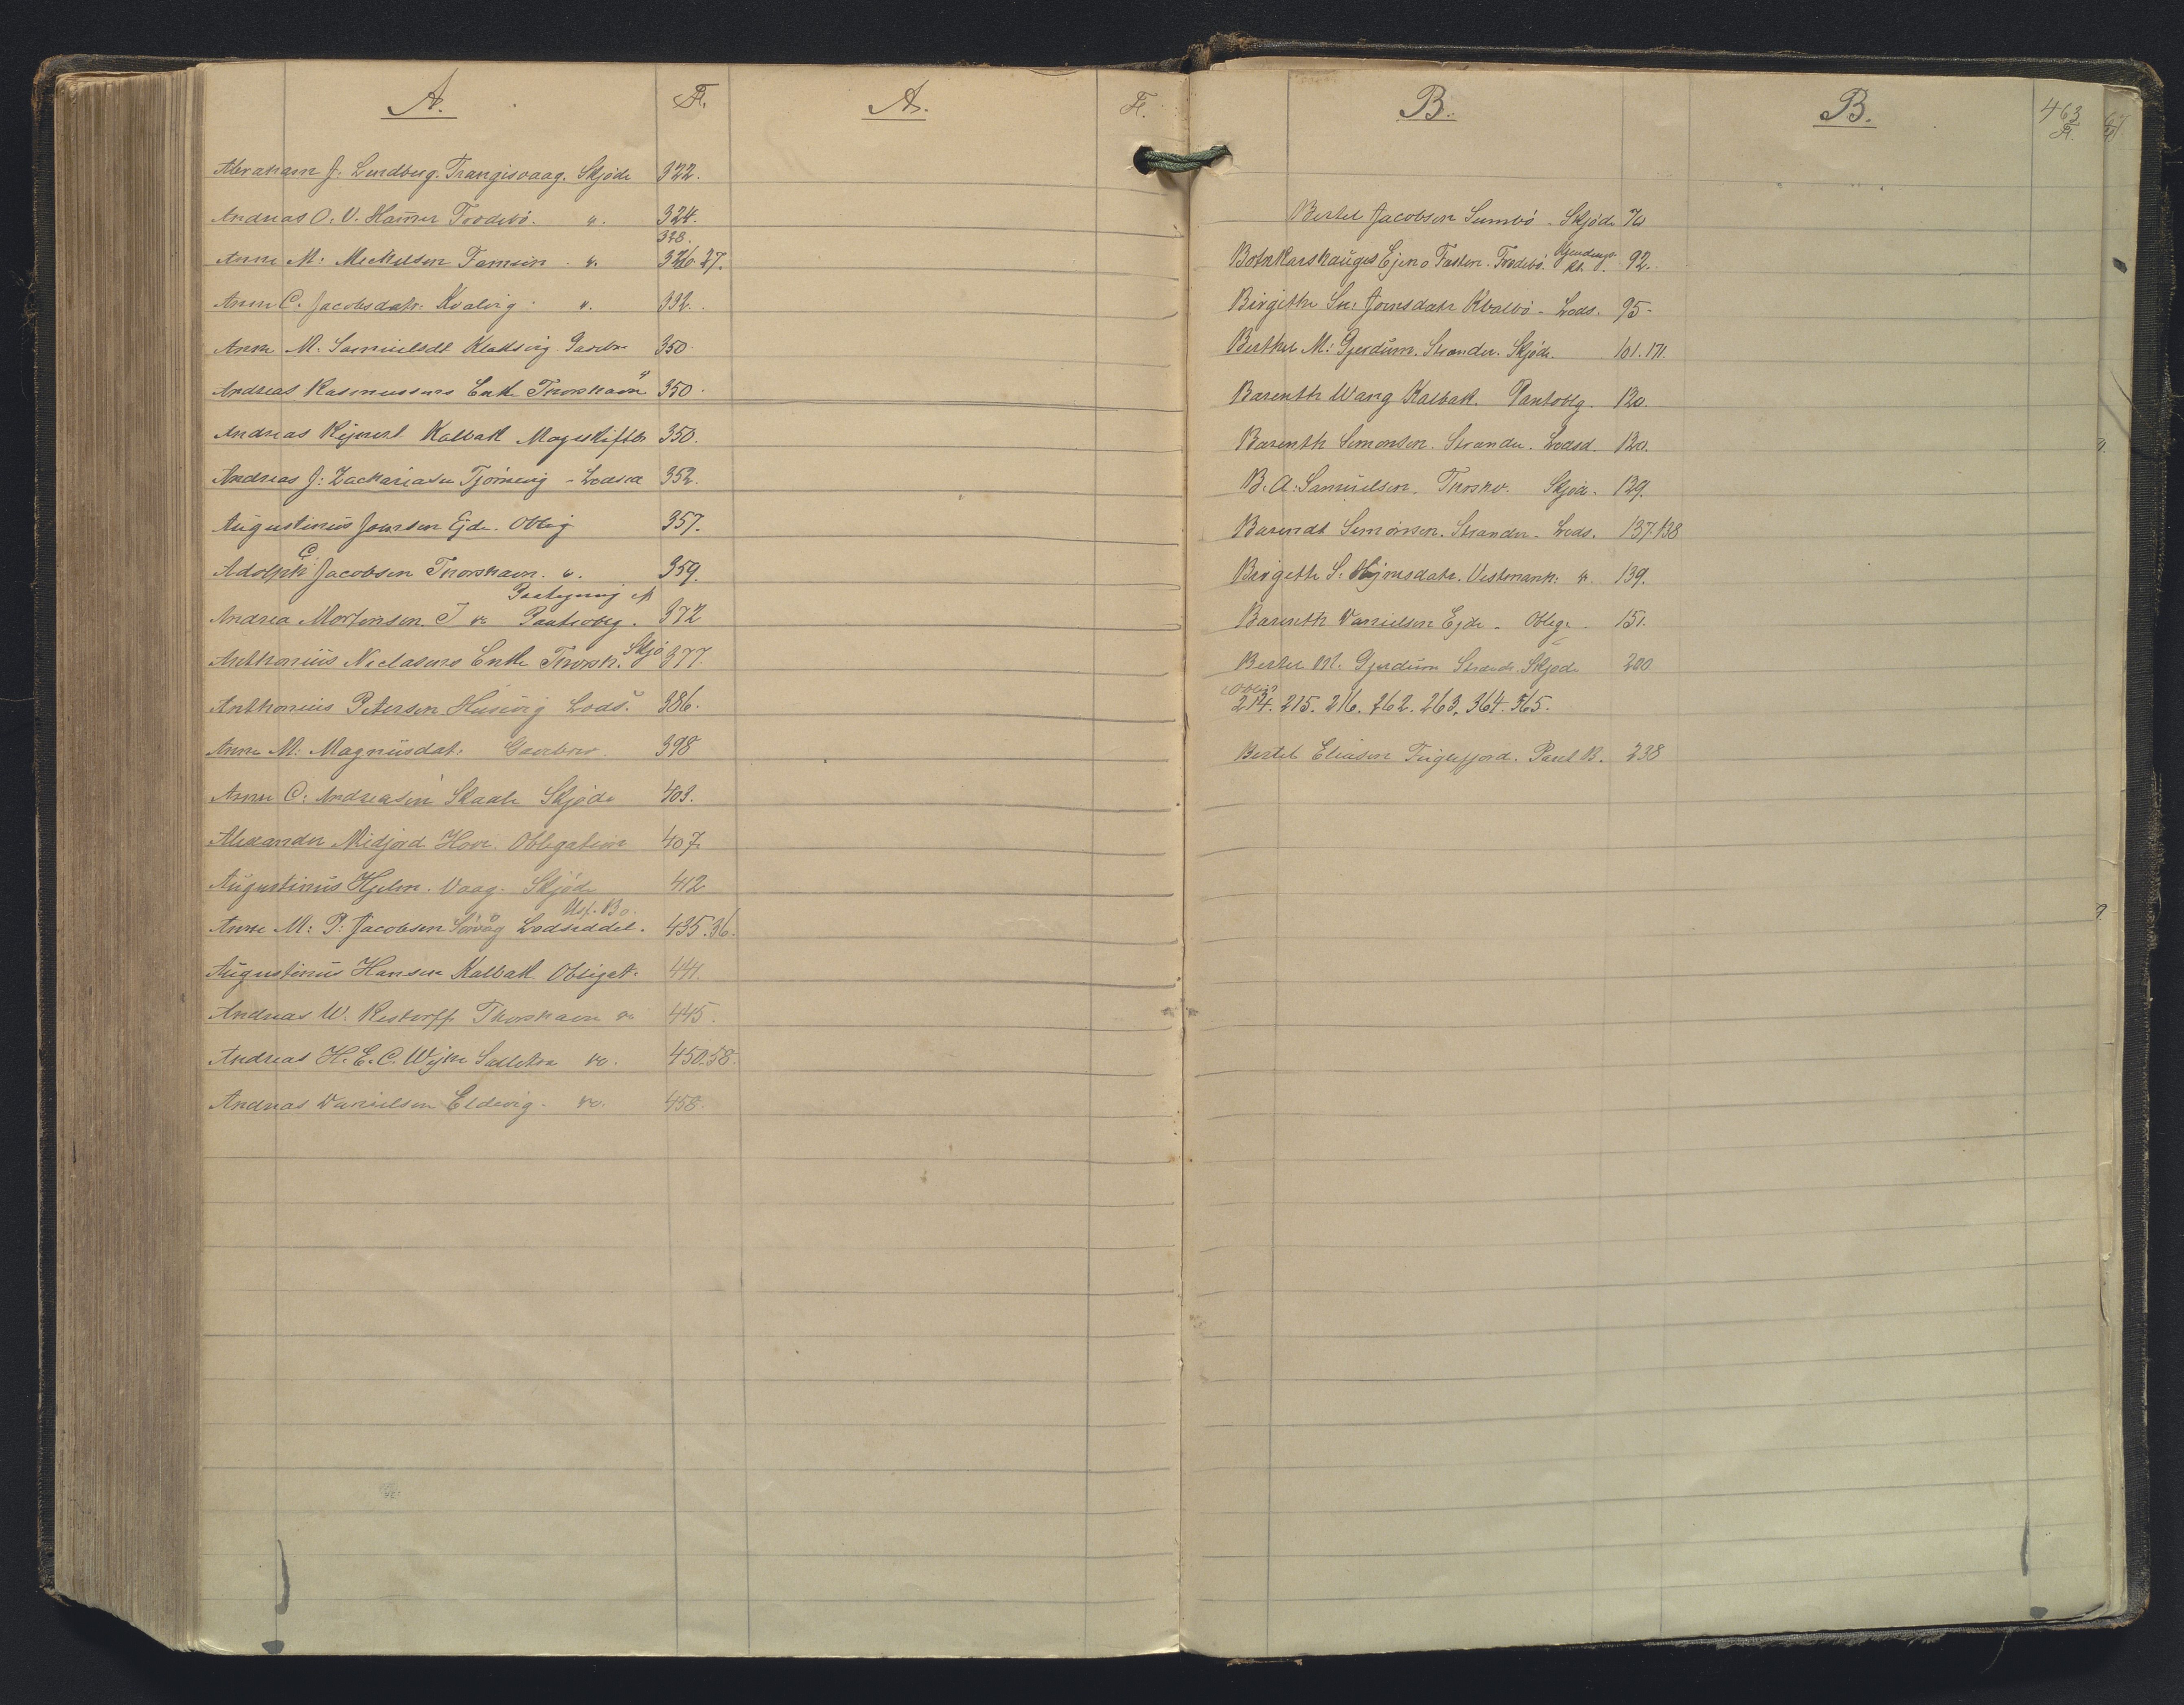 A.
Fl.
A.
Fl.
Abraham J. Lindberg. Trangisvaag. Skjøde 322.
Andreas O. V. Hammer Frodebö. " 324.
328.
Anne M: Michelsen Famien " 326.27.
Anne C. Jacobsdatr. Kvalvig " 332.
Anne M. Samuelsdt Klaksvig Gavebr 350.
Andreas Rasmussens Enke Thorshavn " 350.
Andreas Rejnert Kalbak Mageskiftbr 350.
Andreas J: Zachariasen Tjörnevig - Lodsed 352.
Augustinus Joensen Ejde. Oblig 357.
Adolph C Jacobsen Thorshavn. " 359.
Paategning på
Andrea Mortensen. T " Panteoblg. 372
Anthonius Niclasens Enke Thorsh. Skjö 377.
Anthonius Petersen Husevig Lods. 386.
Anne M: Magnusdat: Gavebrev. 398
Anne C: Andreasen Skaale Skjøde 403.
Alexander Midjord Hove. Obligation 407.
Augustinus Hjelm. Vaag. Skjøde 412
Usk. Bo.
Anne M: P: Jacobsen Sörvåg Lodseddel. 435.36.
Augustinus Hansen Kalbak Obligat. 441.
Andreas W. Restorff Thorshavn " 445.
Andreas H. E. C. Weyhe Selletræ " 450.58.
Andreas Danielsen Eldevig. " 458.
B.
B.
463
Fl.
Bertel Jacobsen Sumbö - Skjøde 70
Botnkarshauges Ejen o Festen. Frodebö. 92.
Birgithe Sn: Joensdatr Kvalbö - Lods. 95-
Berthel M: Gjerdum. Strender. Skjøde. 101.171.
Barenth Wang Kalbak. Pantoblg. 120.
Barenth Simonsen. Strender. Lodsd. 120.
B. A: Samuelsen. Thorshv. Skjøde. 129.
Barendt Simonsen. Strender. Lods. 137.138
Birgithe S. Högnesdatr. Vestmanh: " 139.
Barenth Danielsen Ejde. Oblig. 151.
Bertel M. Gjerdum Strend. Skjøde 200
(Oblig)
214. 215. 216. 262. 263. 364. 365.
Bertel Eliasen Fuglefjord. Parcel B. 238